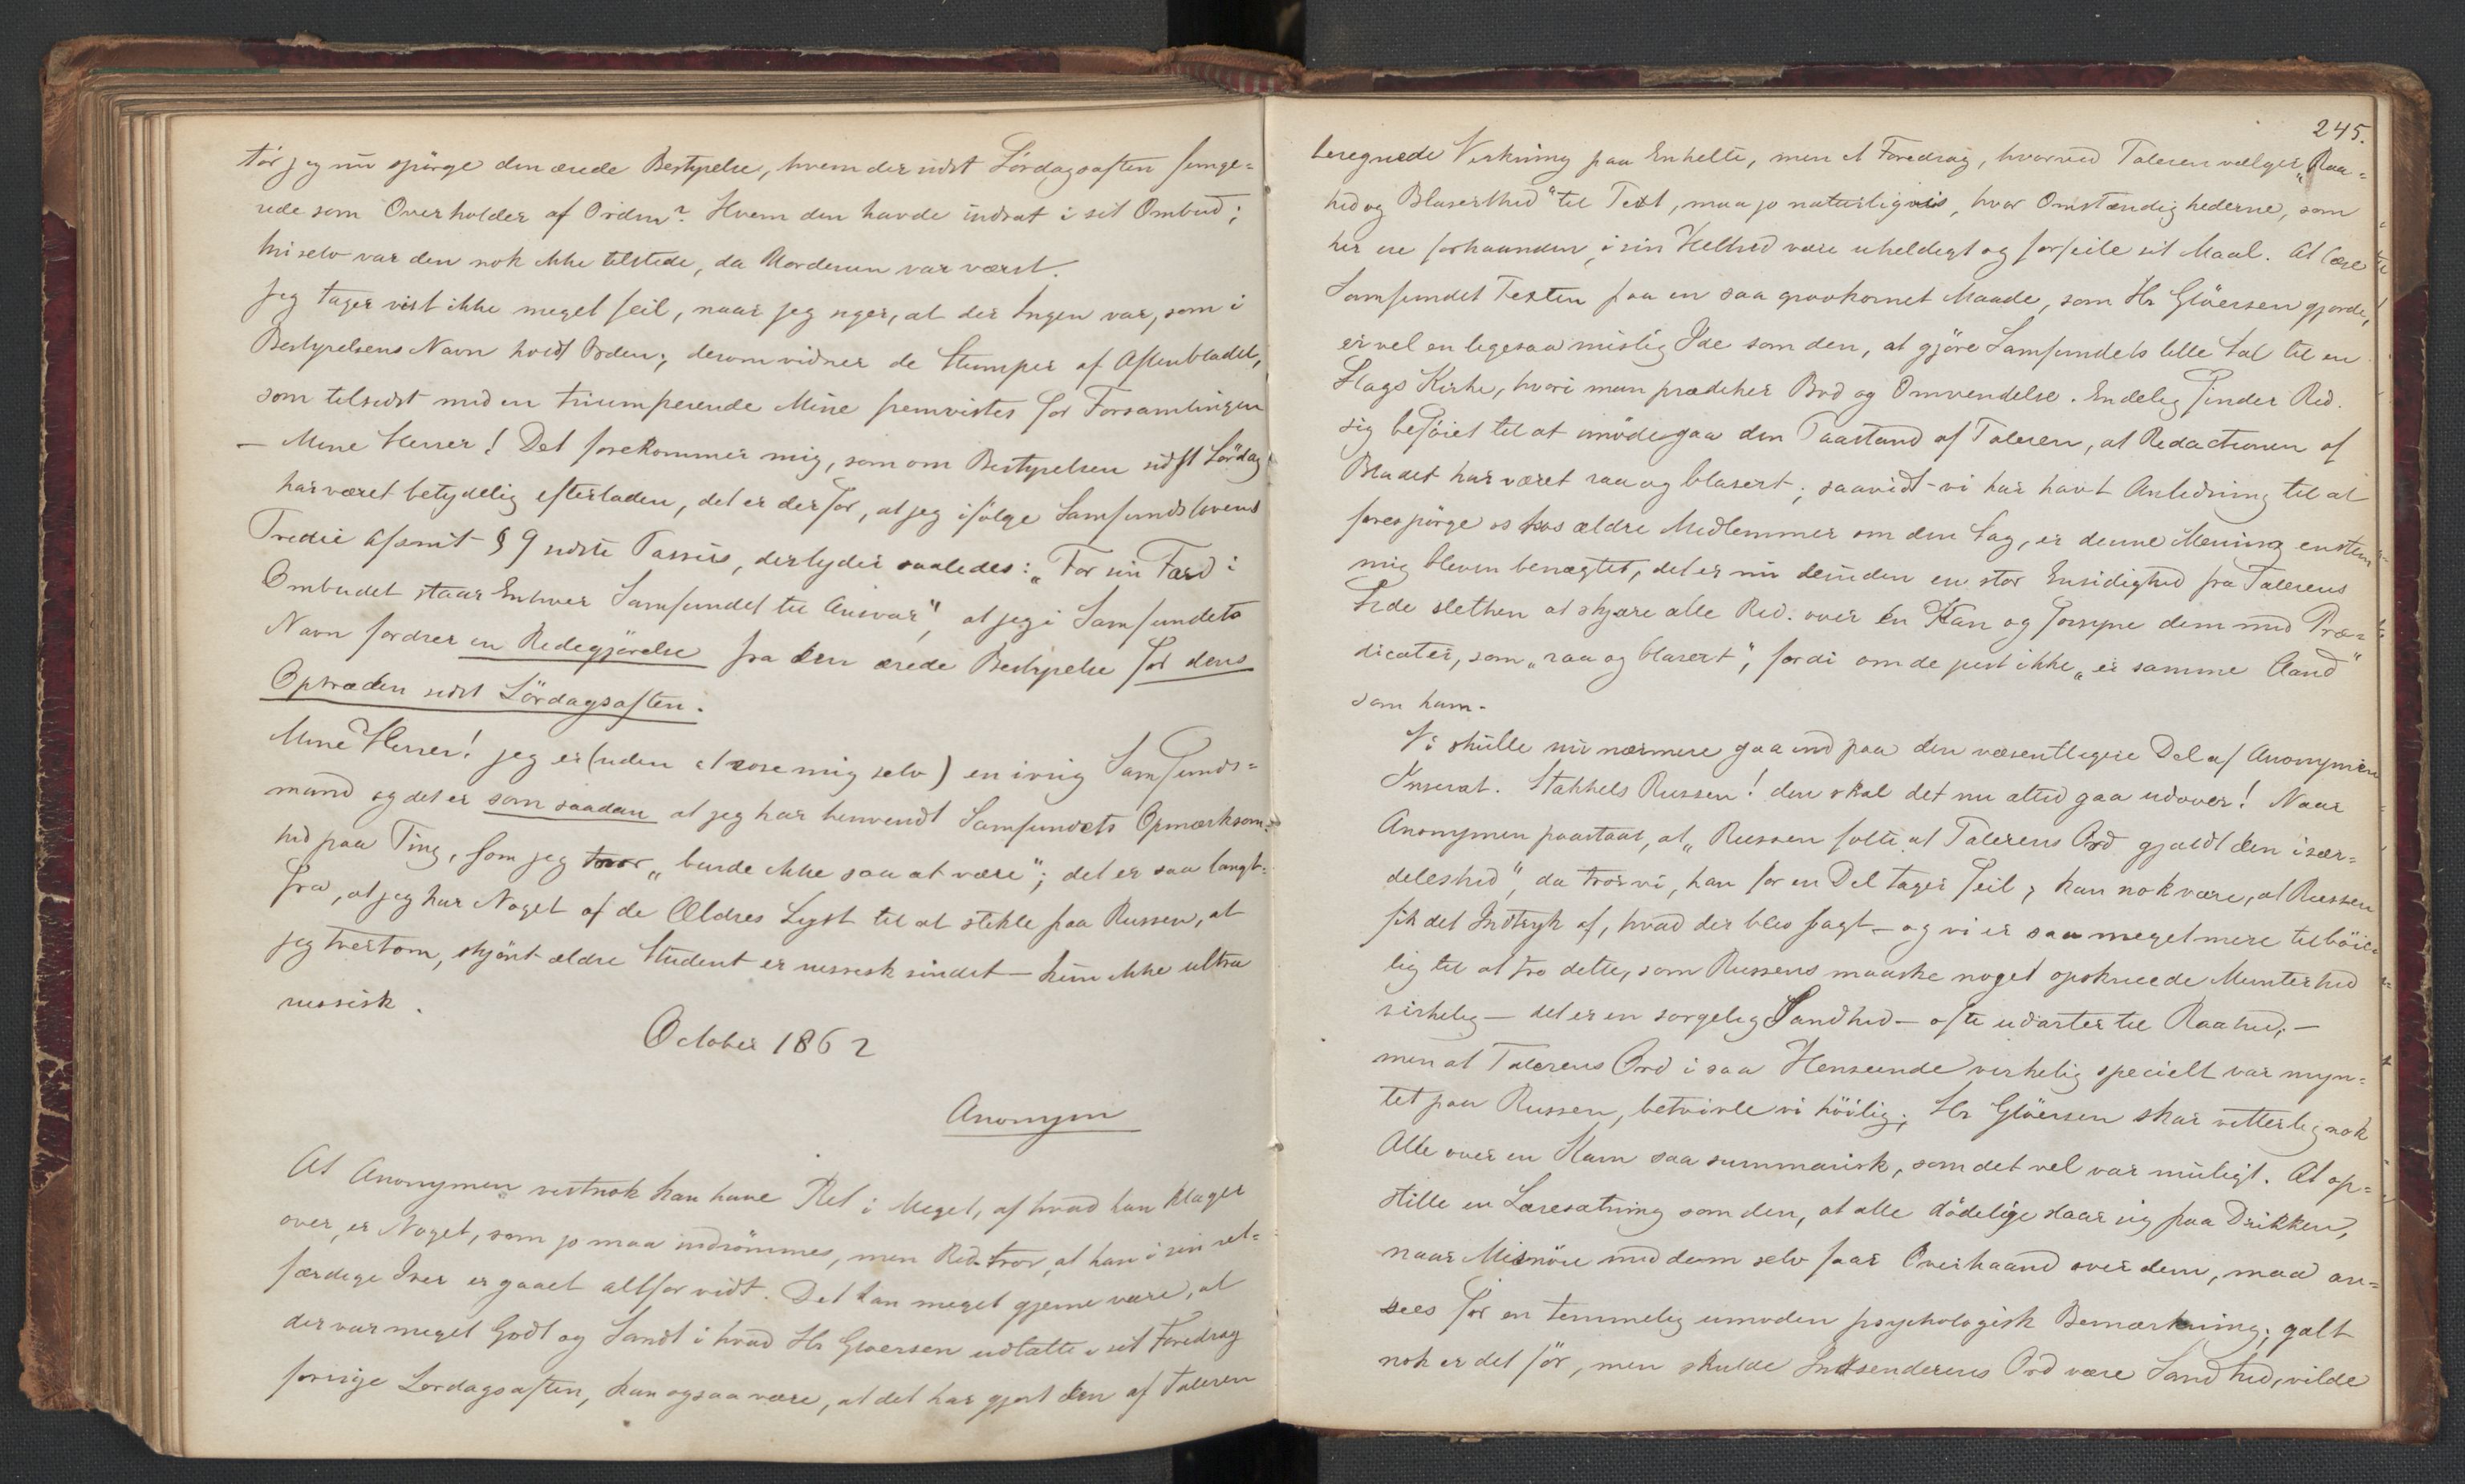 tør jeg nu spørge den ærede Bestyrelse, hvem der sidst Lørdagsaften funge=
rede som Overholder af Orden? Hvem den havde indsat i sit Ombud;
thi selv var den nok ikke tilstede, da Uordenen var værst.
Jeg tager vist ikke meget feil, naar jeg siger, at der Ingen var, som i
Bestyrelsens Navn holdt Orden; derom vidner de Stumper af Aftenbladet,
som tilsidst med en triumperende Mine fremvistes for Forsamlingen
— Mine Herrer! Det forekommer mig, som om Bestyrelsen sidst Lørdag
har været betydelig efterladen, det er derfor, at jeg ifølge Samfundslovens
Tredie Afsnit § 9 sidste Passus, der lyder saaledes: „For sin Færd i
Ombudet staar Enhver Samfundet til Ansvar", at jeg i Samfundets
Navn fordrer en Redegjørelse fra den ærede Bestyrelse for dens
Optræden sidst Lørdagsaften.
Mine Herrer! jeg er (uden at rose mig selv) en ivrig Samfunds=
mand og det er som saadan at jeg har henvendt Samfundets Opmærksom=
hed paa Ting, som jeg tror „burde ikke saa at være"; det er saa langt=
fra, at jeg har Noget af de Ældres Lyst til at stikle paa Russen, at
jeg tvertom, skjønt ældre Student er russisk sindet — kun ikke ultra
russisk.
October 1862
Anonym
At Anonymen vistnok kan have Ret i Meget, af hvad han klager
over, er Noget, som jo maa indrømmes, men Red. tror, at han i sin ret=
færdige Iver er gaaet altfor vidt. Det kan meget gjerne være, at
der var meget Godt og Sandt i hvad Hr Gløersen udtalte i sit Foredrag
forrige Lørdagsaften, kan ogsaa være, at det har gjort den af Taleren
245.
beregnede Virkning paa Enkelte, men et Foredrag, hvorved Taleren vælger „Raa=
hed og Blaserthed" til Text, maa jo naturligvis, hvor Omstændighederne, som
her ere forhaanden, i sin Helhed være uheldigt og forfeile sit Maal. At læse
Samfundet Texten paa en saa grovkornet Maade, som Hr Gløersen gjorde,
er vel en ligesaa mislig Ide som den, at gjøre Samfundets lille Sal til en
Slags Kirke, hvori man prædiker Bod og Omvendelse. Endelig finder Red.
sig beføiet til at imødegaa den Paastand af Taleren, at Redactionen af
Bladet har været raa og blasert; saavidt vi har havt Anledning til at
forespørge os hos ældre Medlemmer om den Sag, er denne Mening enstem=
mig bleven benægtet, det er nu desuden en stor Ensidighed fra Talerens
Side slethen at skjære alle Red. over én Kam og forsyne dem med Præ=
dicater, som „raa og blasert", fordi om de just ikke „er samme Aand"
som ham.
Vi skulle nu nærmere gaa ind paa den væsentligere Del af Anonymens
Inserat. Stakkels Russen! den skal det nu altid gaa udover! Naar
Anonymen paastaar, at „Russen følte at Talerens Ord gjaldt den især=
deleshed", da tror vi, han for en Del tager feil; kan nok være, at Russen
fik det Indtryk af, hvad der blev sagt — og vi er saa meget mere tilbøie=
lig til at tro dette, som Russens maaske noget opskruede Munterhed
virkelig — det er en sorgelig Sandhed — ofte udarter til Raahed; —
men at Talerens Ord i saa Henseende virkelig specielt var myn=
tet paa Russen, betvivle vi höilig; Hr Gløersen skar vitterlig nok
Alle over en Kam saa summarisk, som det vel var muligt. At op=
stille en Læresætning som den, at alle dødelige slaar sig paa Drikken,
naar Misnøie med dem selv faar Overhaand over dem, maa an=
sees for en temmelig umoden psychologisk Bemærkning; galt
nok er det før, men skulde Indsenderens Ord være Sandhed, vilde